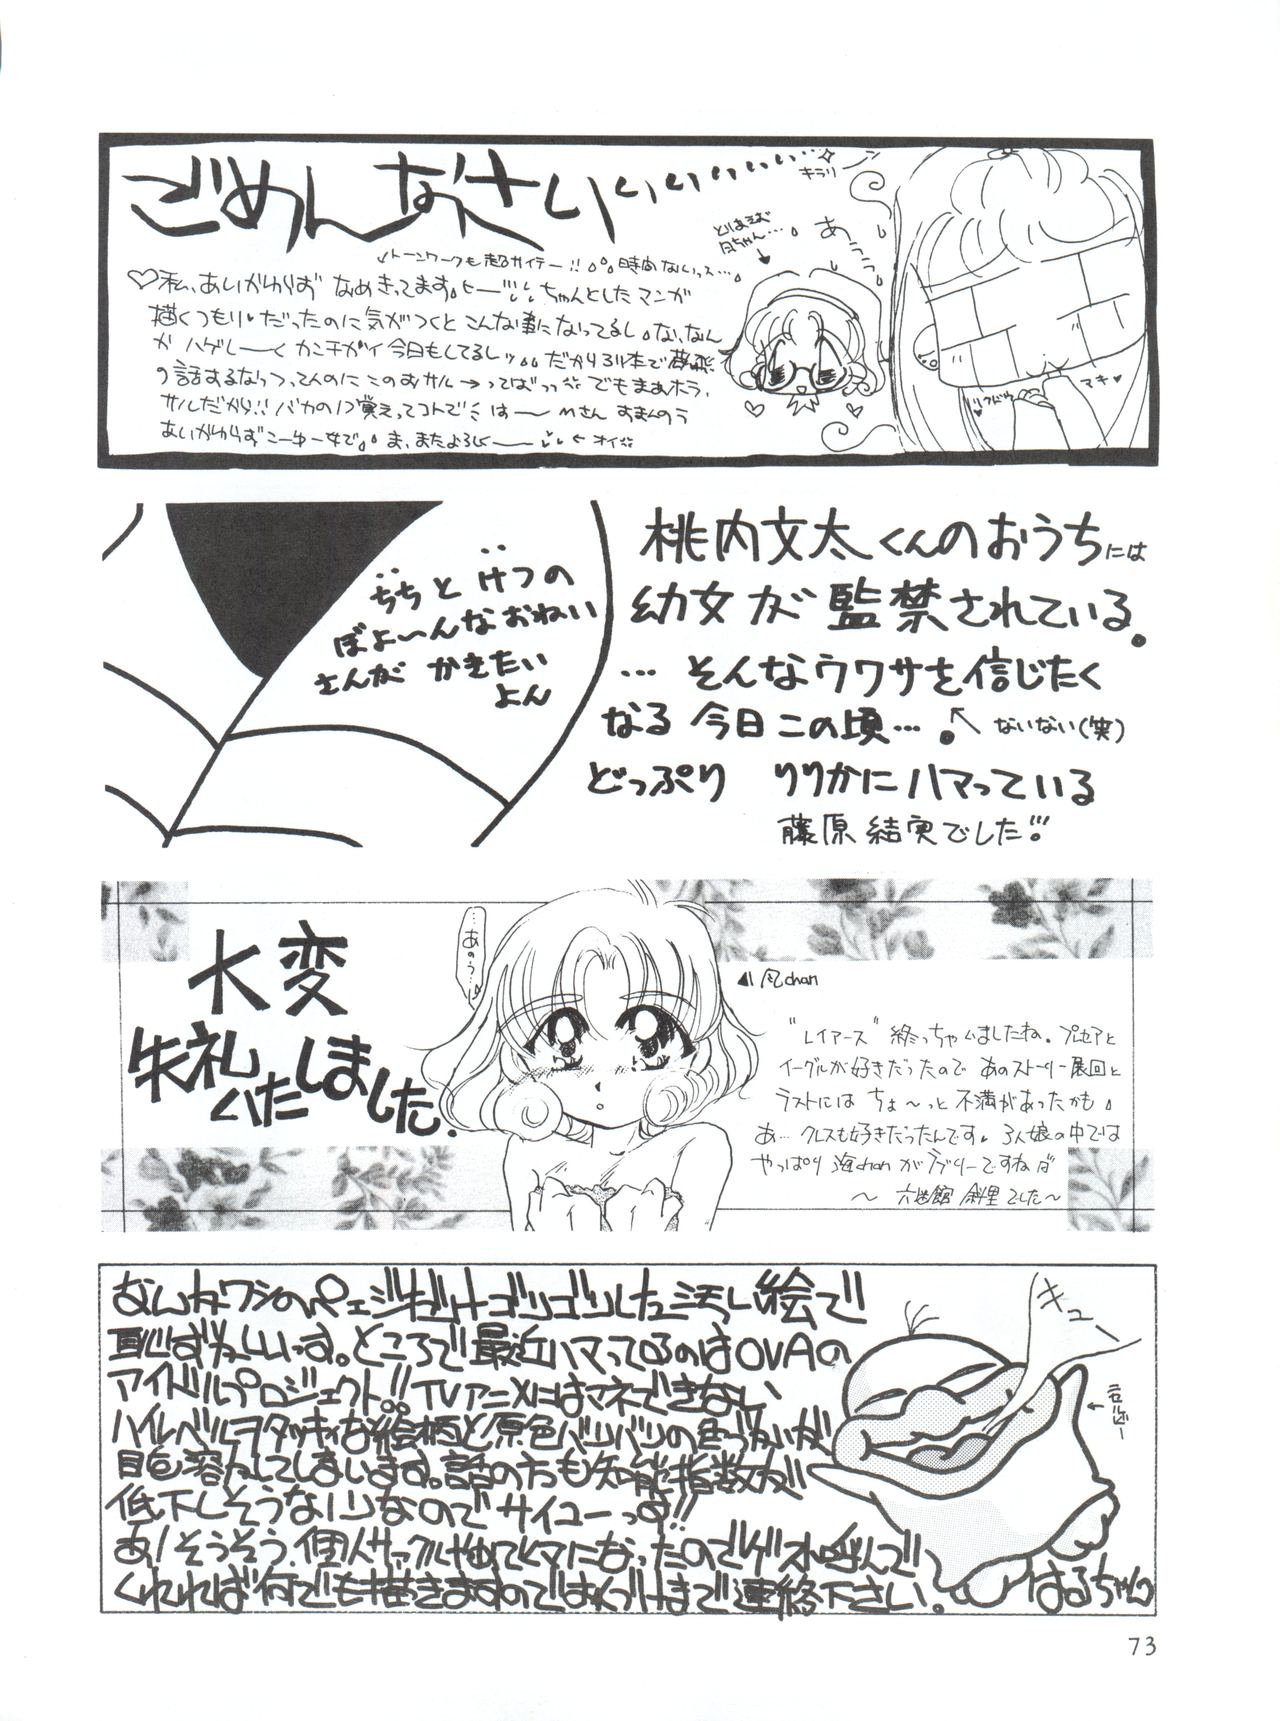 ごめんなさいぃぃぃぃ
キラリ
あうううう
とりあえず
風ちゃん…
↙トーンワークも超サイテー!! 時間ないっス…
♡私、あいかわらず なめきってます。ヒー ちゃんとしたマンガ
描くつもり♥だったのに気がつくとこんな事になってるし。な、なん
か ハゲしーく カンチガイ 今日もしてるしッ
の話するなっつってんのにこのおサル→ってばっっ でもまぁホラ、
サルだから!! バカの1つ覚えってコトで は——Mさん すまんのう
あいかわらずこーゆー女で。ま、またよろしく—— ←オイ
マキ♥
桃内文太くんのおうちには
幼女が監禁されている。
…そんなウワサを信じたく
なる今日この頃…。
ないない(笑)
どっぷり りりかにハマっている
藤原結実でした!!
ちちと けつの
ぼよ〜んなおねい
さんが かきたい
よん
大変
失礼
いたしました。
…あのう
◀風chan
"レイアース"終っちゃいましたね。プレセアと
イーグルが好きだったので あのストーリー展回と
ラストには ちょ〜っと不満があったかも
あ…クレスも好きだったんです。3人娘の中では
やっぱり 海chanがラブリーですねぱ
斜里でした〜
なんかワシのペェジだけゴリゴリした汚い絵で
恥じずかしいっす。ところで最近ハマってるのはOVAの
アイドルプロジェクト!! TVアニメにはマネできない
ハイレベルヲタッキィな絵柄と原色バリバリの色づかいが
目を溶かしてしまいます。話の方も知能指数が
低下しそうなノリなのでサイコーっす!!
あ!そうそう、個人サークルやめてヒマになったのでゲスト呼んで
くれれば何でも描きますのではんづけまで連絡下さい。
キュー
ニセルビー
はるちゃん
73